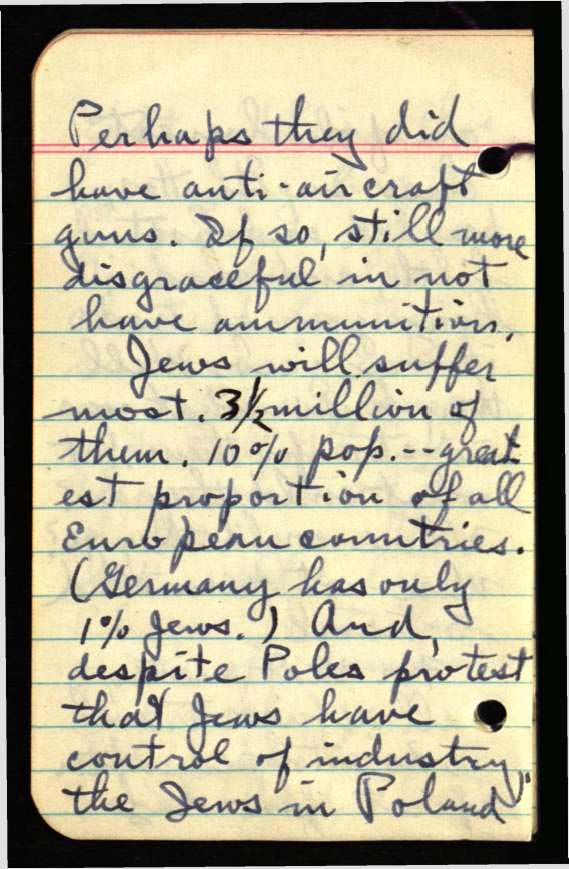 Perhaps they did
have anti-aircraft
guns. If so, still more
disgraceful in not
have ammunition.
Jews will suffer
most. 3 1/2 million of
them. 10% pop.--great
est proportion of all
European countries.
(Germany has only
1% Jews.) And,
despite Poles protest
that Jews have
control of industry,
the Jews in Poland